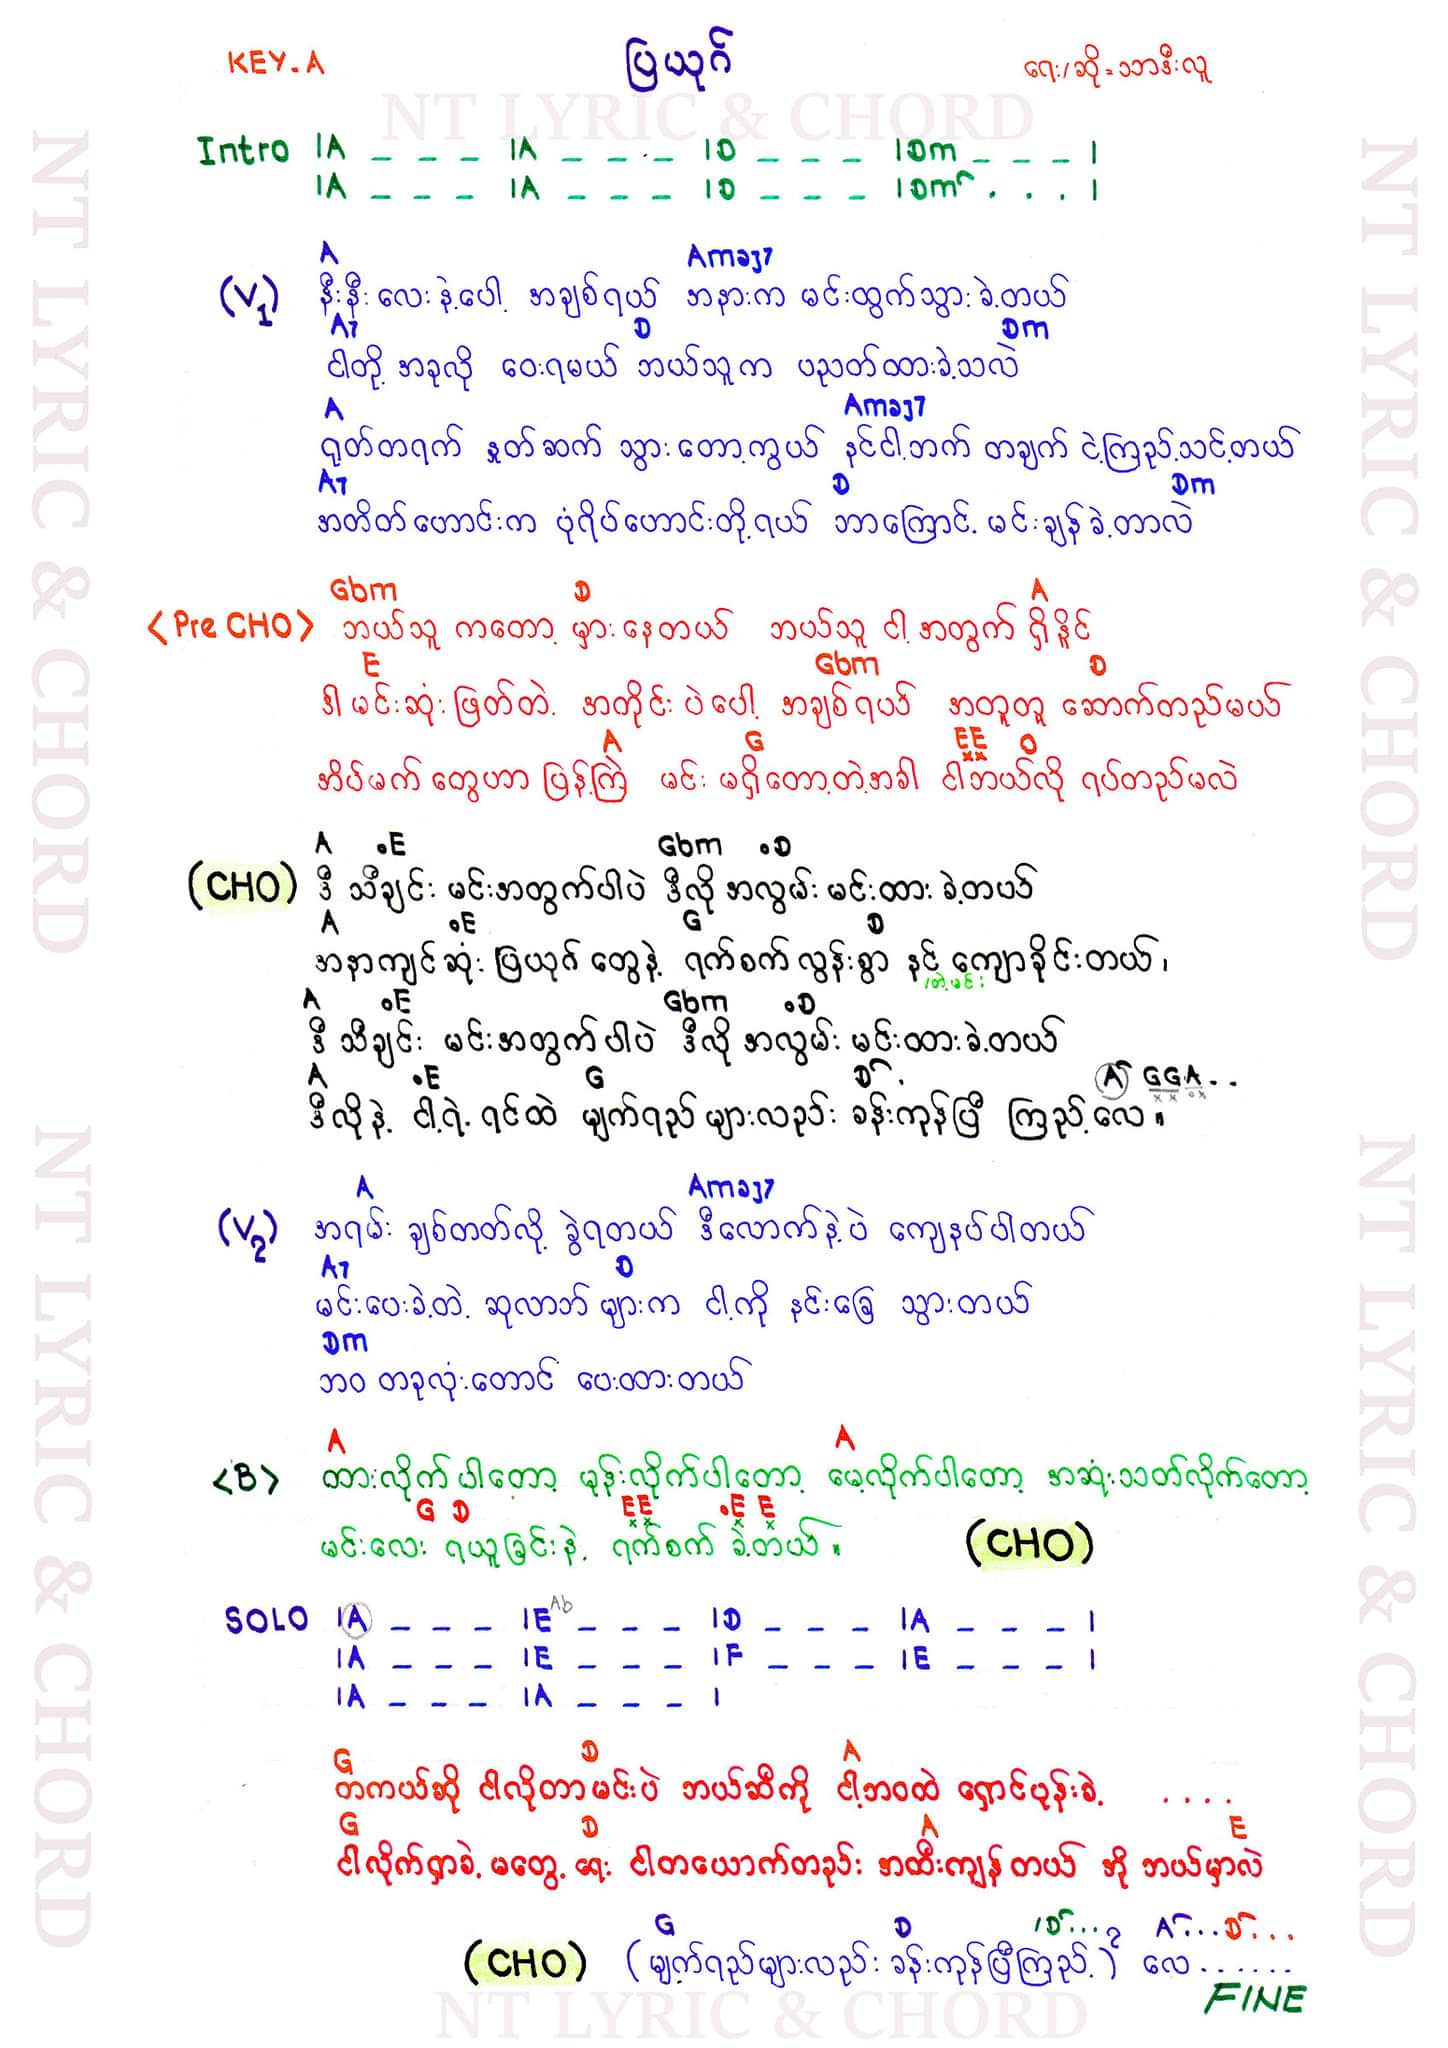 KEY.A
ပြယုဂ်
ရေး/ဆို = သာဒီးလူ
NT LYRIC & CHORD
Intro |A _ _ _ |A _ _ _ |D _ _ _ |Dm _ _ _ |
|A _ _ _ |A _ _ _ |D _ _ _ |Dm . . . |
A Amaj7
(V1) နီးနီးလေးနဲ့ပေါ့ အချစ်ရယ် အနားက မင်းထွက်သွားခဲ့တယ်
A7 D Dm
ငါတို့ အခုလို ဝေးရမယ် ဘယ်သူက ပညတ်ထားခဲ့သလဲ
A Amaj7
ရုတ်တရက် နှုတ်ဆက်သွားတော့ကွယ် နင်ငါ့ဘက် တချက် ငဲ့ကြည့်သင့်တယ်
A7 D Dm
အတိတ်ဟောင်းက ပုံရိပ်ဟောင်းတို့ရယ် ဘာကြောင့် မင်းချန်ခဲ့တာလဲ
Gbm D A
<Pre CHO> ဘယ်သူ ကတော့ မှားနေတယ် ဘယ်သူ ငါ့အတွက် ရှိနိုင်
E Gbm D
ဒါ မင်းဆုံးဖြတ်တဲ့ အတိုင်းပဲပေါ့ အချစ်ရယ် အတူတူ ဆောက်တည်မယ်
A G EE D
အိပ်မက်တွေဟာ ပြန့်ကြဲ မင်း မရှိတော့တဲ့အခါ ငါဘယ်လို ရပ်တည်မလဲ
A .E Gbm .D
(CHO) ဒီ သီချင်း မင်းအတွက်ပါပဲ ဒီလို အလွမ်း မင်းထားခဲ့တယ်
A .E G D
အနာကျင်ဆုံး ပြယုဂ်တွေနဲ့ ရက်စက်လွန်းစွာ နင့် ကျောခိုင်းတယ်၊
/တဲ့မင်း
A .E Gbm .D
ဒီ သီချင်း မင်းအတွက်ပါပဲ ဒီလို အလွမ်း မင်းထားခဲ့တယ်
A .E G D . A GGA..
ဒီလိုနဲ့ ငါ့ရဲ့ရင်ထဲ မျက်ရည်များလည်း ခန်းကုန်ပြီ ကြည့်လေ။
A Amaj7
(V2) အရမ်း ချစ်တတ်လို့ ခွဲရတယ် ဒီလောက်နဲ့ပဲ ကျေနပ်ပါတယ်
A7 D
မင်းပေးခဲ့တဲ့ ဆုလာဘ်များက ငါ့ကို နင်းခြေ သွားတယ်
Dm
ဘဝ တခုလုံးတောင် ပေးထားတယ်
A A
<B> ထားလိုက်ပါတော့ မုန်းလိုက်ပါတော့ မေ့လိုက်ပါတော့ အဆုံးသတ်လိုက်တော့
G D EE .E E
မင်းလေး ရယူခြင်းနဲ့ ရက်စက်ခဲ့တယ်။ (CHO)
SOLO |A _ _ _ |E Ab _ _ _ |D _ _ _ |A _ _ _ |
|A _ _ _ |E _ _ _ |F _ _ _ |E _ _ _ |
|A _ _ _ |A _ _ _ |
G D A
တကယ်ဆို ငါလိုတာမင်းပဲ ဘယ်ဆီကို ငါ့ဘဝထဲ ရှောင်ပုန်းခဲ့ ....
G D A E
ငါလိုက်ရှာခဲ့ မတွေ့ရေး ငါတယောက်တည်း အထီးကျန်တယ် အို ဘယ်မှာလဲ
G D /D... A... D...
(CHO) (မျက်ရည်များလည်း ခန်းကုန်ပြီကြည့်)2 လေ......
FINE
NT LYRIC & CHORD
NT LYRIC & CHORD
NT LYRIC & CHORD
NT LYRIC & CHORD
NT LYRIC & CHORD